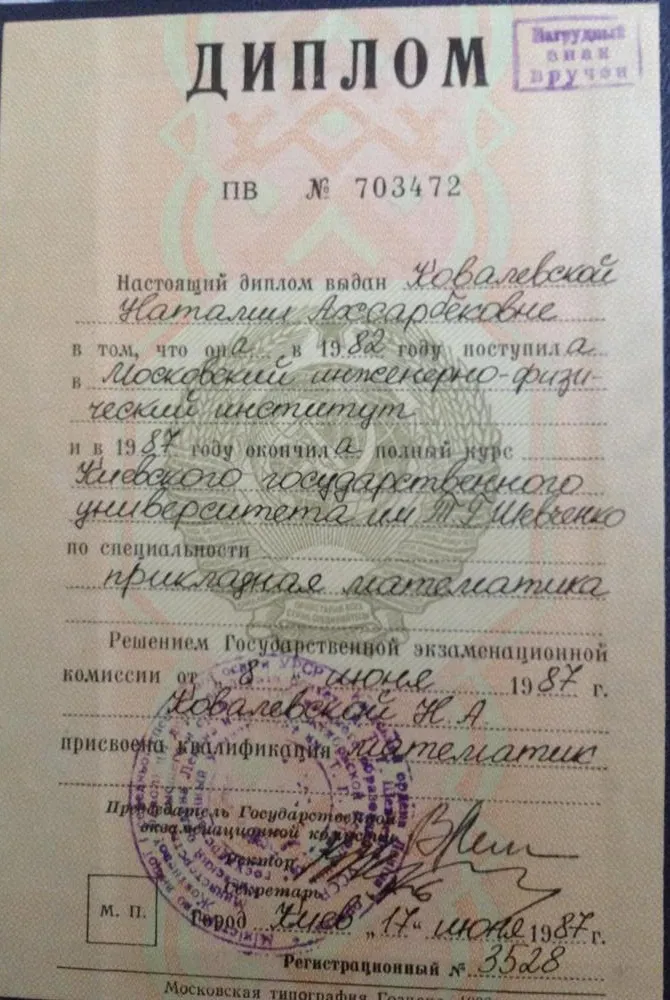 Нагрудный
знак
вручен
ДИПЛОМ
ПВ № 703472
Настоящий диплом выдан Ковалевской
Наталии Ахсарбековне
в том, что она в 1982 году поступила
в Московский инженерно-физи-
ческий институт
и в 1987 году окончила полный курс
Киевского государственного
университета им Т Г Шевченко
по специальности
прикладная математика
Решением Государственной экзаменационной
комиссии от „8“ июня 1987 г.
Ковалевской Н А
присвоена квалификация математик
Председатель Государственной
экзаменационной комиссии
Ректор
Секретарь
М. П.
Город Киев „17“ июня 1987 г.
Регистрационный № 3528
Московская типография Гознака